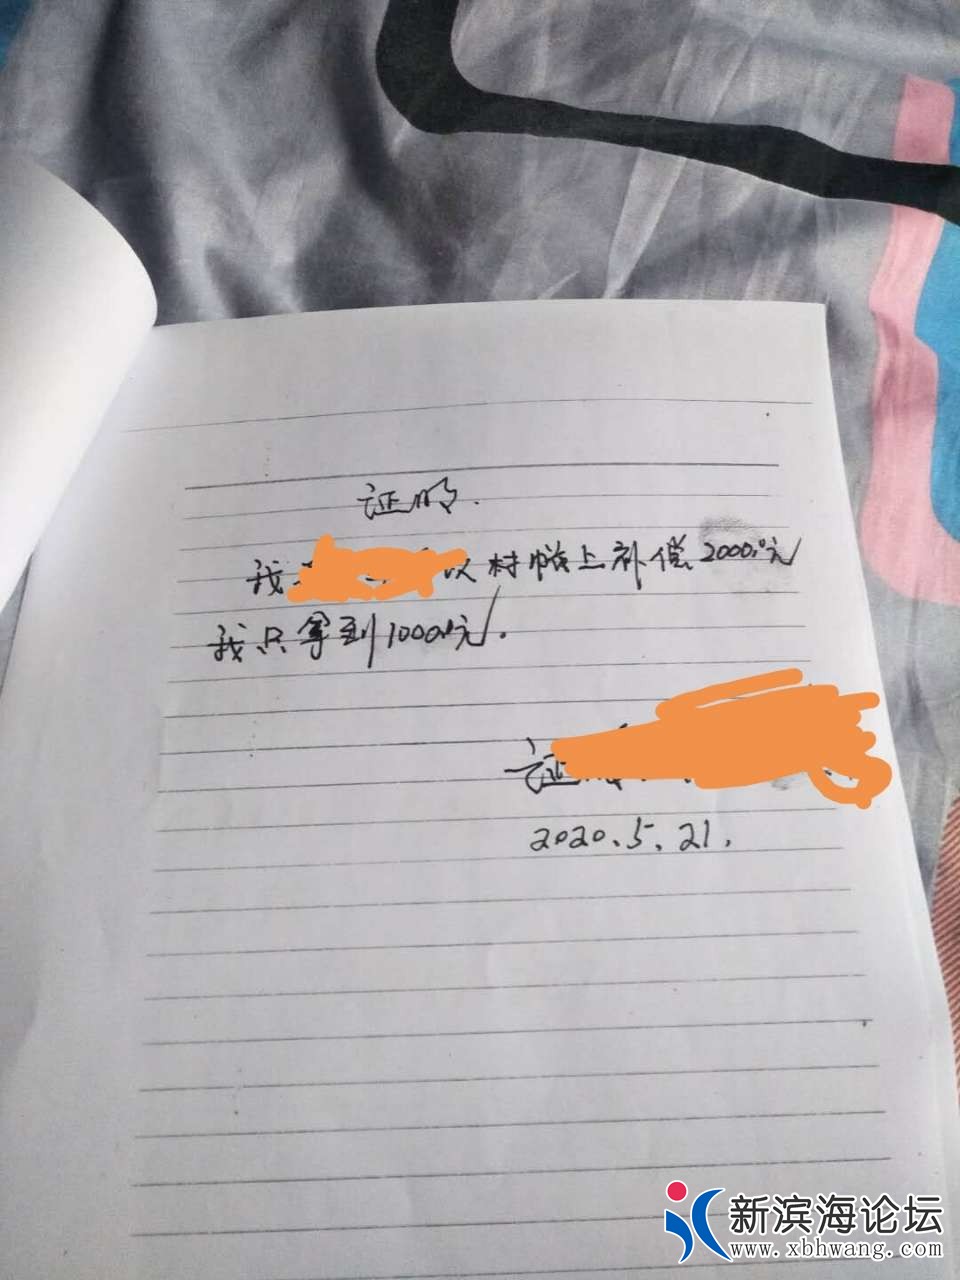 证明.
我 村帐上补偿2000.0元
我只拿到1000.0元.
证
2020.5.21.
新滨海论坛
www.xbhwang.com